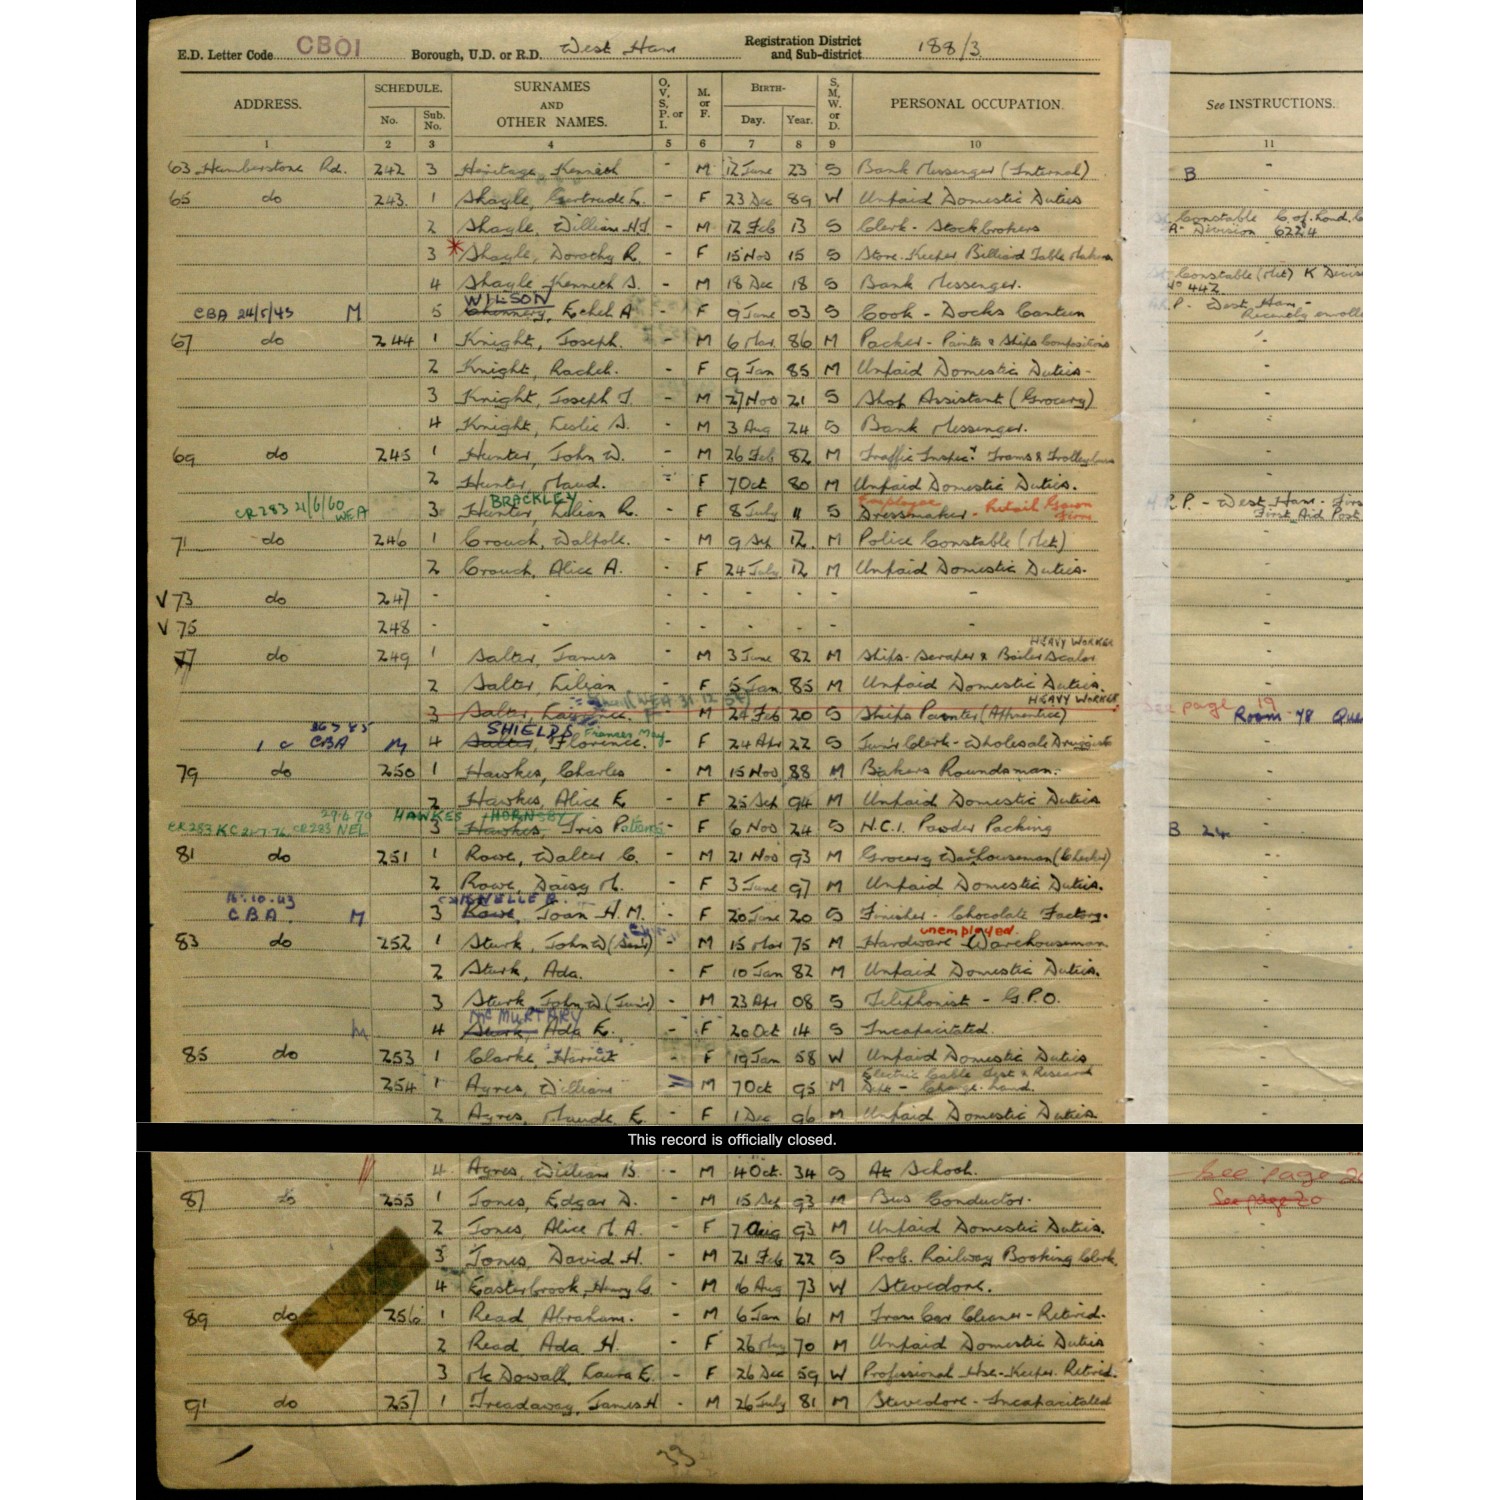 E.D. Letter Code CBOI Borough, U.D. or R.D. West Ham Registration District and Sub-district 188/3
ADDRESS. SCHEDULE. No. Sub. No. SURNAMES AND OTHER NAMES. O, V, S, P. or I. M. or F. BIRTH- Day. Year. S, M, W. or D. PERSONAL OCCUPATION. See INSTRUCTIONS.
1 2 3 4 5 6 7 8 9 10 11
63 Humberstone Rd. 242 3 Heritage, Kenneth - M 12 June 23 S Bank Messenger (Internal) B
65 do 243 1 Shayle, Gertrude E. - F 23 Dec 89 W Unpaid Domestic Duties -
2 Shayle, William H.J. - M 12 Feb 13 S Clerk - Stockbrokers Constable C. of. Lond. A- Division 622A
3 * Shayle, Dorothy R. - F 15 Nov 15 S Store-Keeper Billiard Table Makers -
4 Shayle Kenneth S. - M 18 Dec 18 S Bank Messenger. Constable (Met) K No 442
CBA 24/5/43 M 5 WILSON Ethel A - F 9 June 03 S Cook - Docks Canteen R.P. - West Ham - Recently
67 do 244 1 Knight, Joseph. - M 6 Mar. 86 M Packer - Paints & Ships Compositions
2 Knight, Rachel. - F 9 Jan 85 M Unpaid Domestic Duties -
3 Knight, Joseph J. - M 27 Nov 21 S Shop Assistant (Grocery) -
4 Knight, Leslie S. - M 3 Aug 24 S Bank Messenger. -
69 do 245 1 Hunter, John W. - M 26 Feb 82 M Traffic Inspec. Trams & Trolleybuses -
2 Hunter Maud. - F 7 Oct 80 M Unpaid Domestic Duties. -
CR283 21/6/60 WEA 3 BRACKLEY Hunter, Lilian R. - F 8 July 11 S Employee Dressmaker - Retail Gown Firm R.P. - West Ham - First Aid Post
71 do 246 1 Crouch, Walpole. - M 9 Sep 12. M Police Constable (Met) -
2 Crouch, Alice A. - F 24 July 12 M Unpaid Domestic Duties. -
V 73 do 247 - - - - - - - -
V 75 248 - - - - - - - -
77 do 249 1 Salter, James M 3 June 82 M Ships-Scraper & Boiler Scaler HEAVY WORKER -
2 Salter, Lilian F 5 Jan 85 M Unpaid Domestic Duties. -
3 Salter, (WEA 31.12.54) M 24 Feb 20 S Ships Painter (Apprentice) HEAVY WORKER See page 19 Room 48
CBA M 4 SHIELDS Florence. Frances May - F 24 Apr 22 S Jun'r Clerk - Wholesale Druggists
79 do 250 1 Hawkes, Charles - M 15 Nov 88 M Bakers Roundsman. -
2 Hawkes, Alice E. - F 25 Sep 94 M Unpaid Domestic Duties -
29.6.70 CR283 NEL HAWKES HORNSBY 3 Hawkes, Iris - F 6 Nov 24 S N.C.I. Powder Packing B 24
81 do 251 1 Rowe, Walter C. - M 21 Nov 93 M Grocery Warehouseman (Checker) -
2 Rowe, Daisy M. - F 3 June 97 M Unpaid Domestic Duties. -
15.10.43 CBA. M 3 Rowe, Joan H. M. - F 20 June 20 S Finisher - Chocolate Factory. -
83 do 252 1 Sturk, John W (Sen'r) - M 15 Mar 75 M Hardware Warehouseman unemployed. -
2 Sturk, Ada. - F 10 Jan 82 M Unpaid Domestic Duties. -
3 Sturk, John W (Jun'r) - M 23 Apr 08 S Telephonist - G.P.O. -
M 4 McMURTARY Sturk, Ada E. - F 20 Oct 14 S Incapacitated. -
85 do 253 1 Clarke, Harriet - F 19 Jan 58 W Unpaid Domestic Duties -
254 1 Ayres, William = M 7 Oct 95 M Electric Cable Test & Research Dept - Charge hand. -
2 Ayres, Maude E. - F 1 Dec 96 M Unpaid Domestic Duties -
This record is officially closed.
4 Ayres, William B. - M 4 Oct. 34 S At School. See page
87 do 255 1 Jones, Edgar D. - M 15 Sep 93 M Bus Conductor. See page 20
2 Jones, Alice M. A. - F 7 Aug 93 M Unpaid Domestic Duties. -
3 Jones, David H. - M 21 Feb 22 S Prob. Railway Booking Clerk. -
4 Easterbrook, Henry G. - M 16 Aug 73 W Stevedore. -
89 do 256 1 Read, Abraham. - M 6 Jan 61 M Tram Car Cleaner - Retired. -
2 Read, Ada H. - F 26 May 70 M Unpaid Domestic Duties -
3 McDowall, Laura E. - F 26 Dec 59 W Professional Hse-Keeper. Retired. -
91 do 257 1 Treadaway, James H - M 26 July 81 M Stevedore - Incapacitated -
33